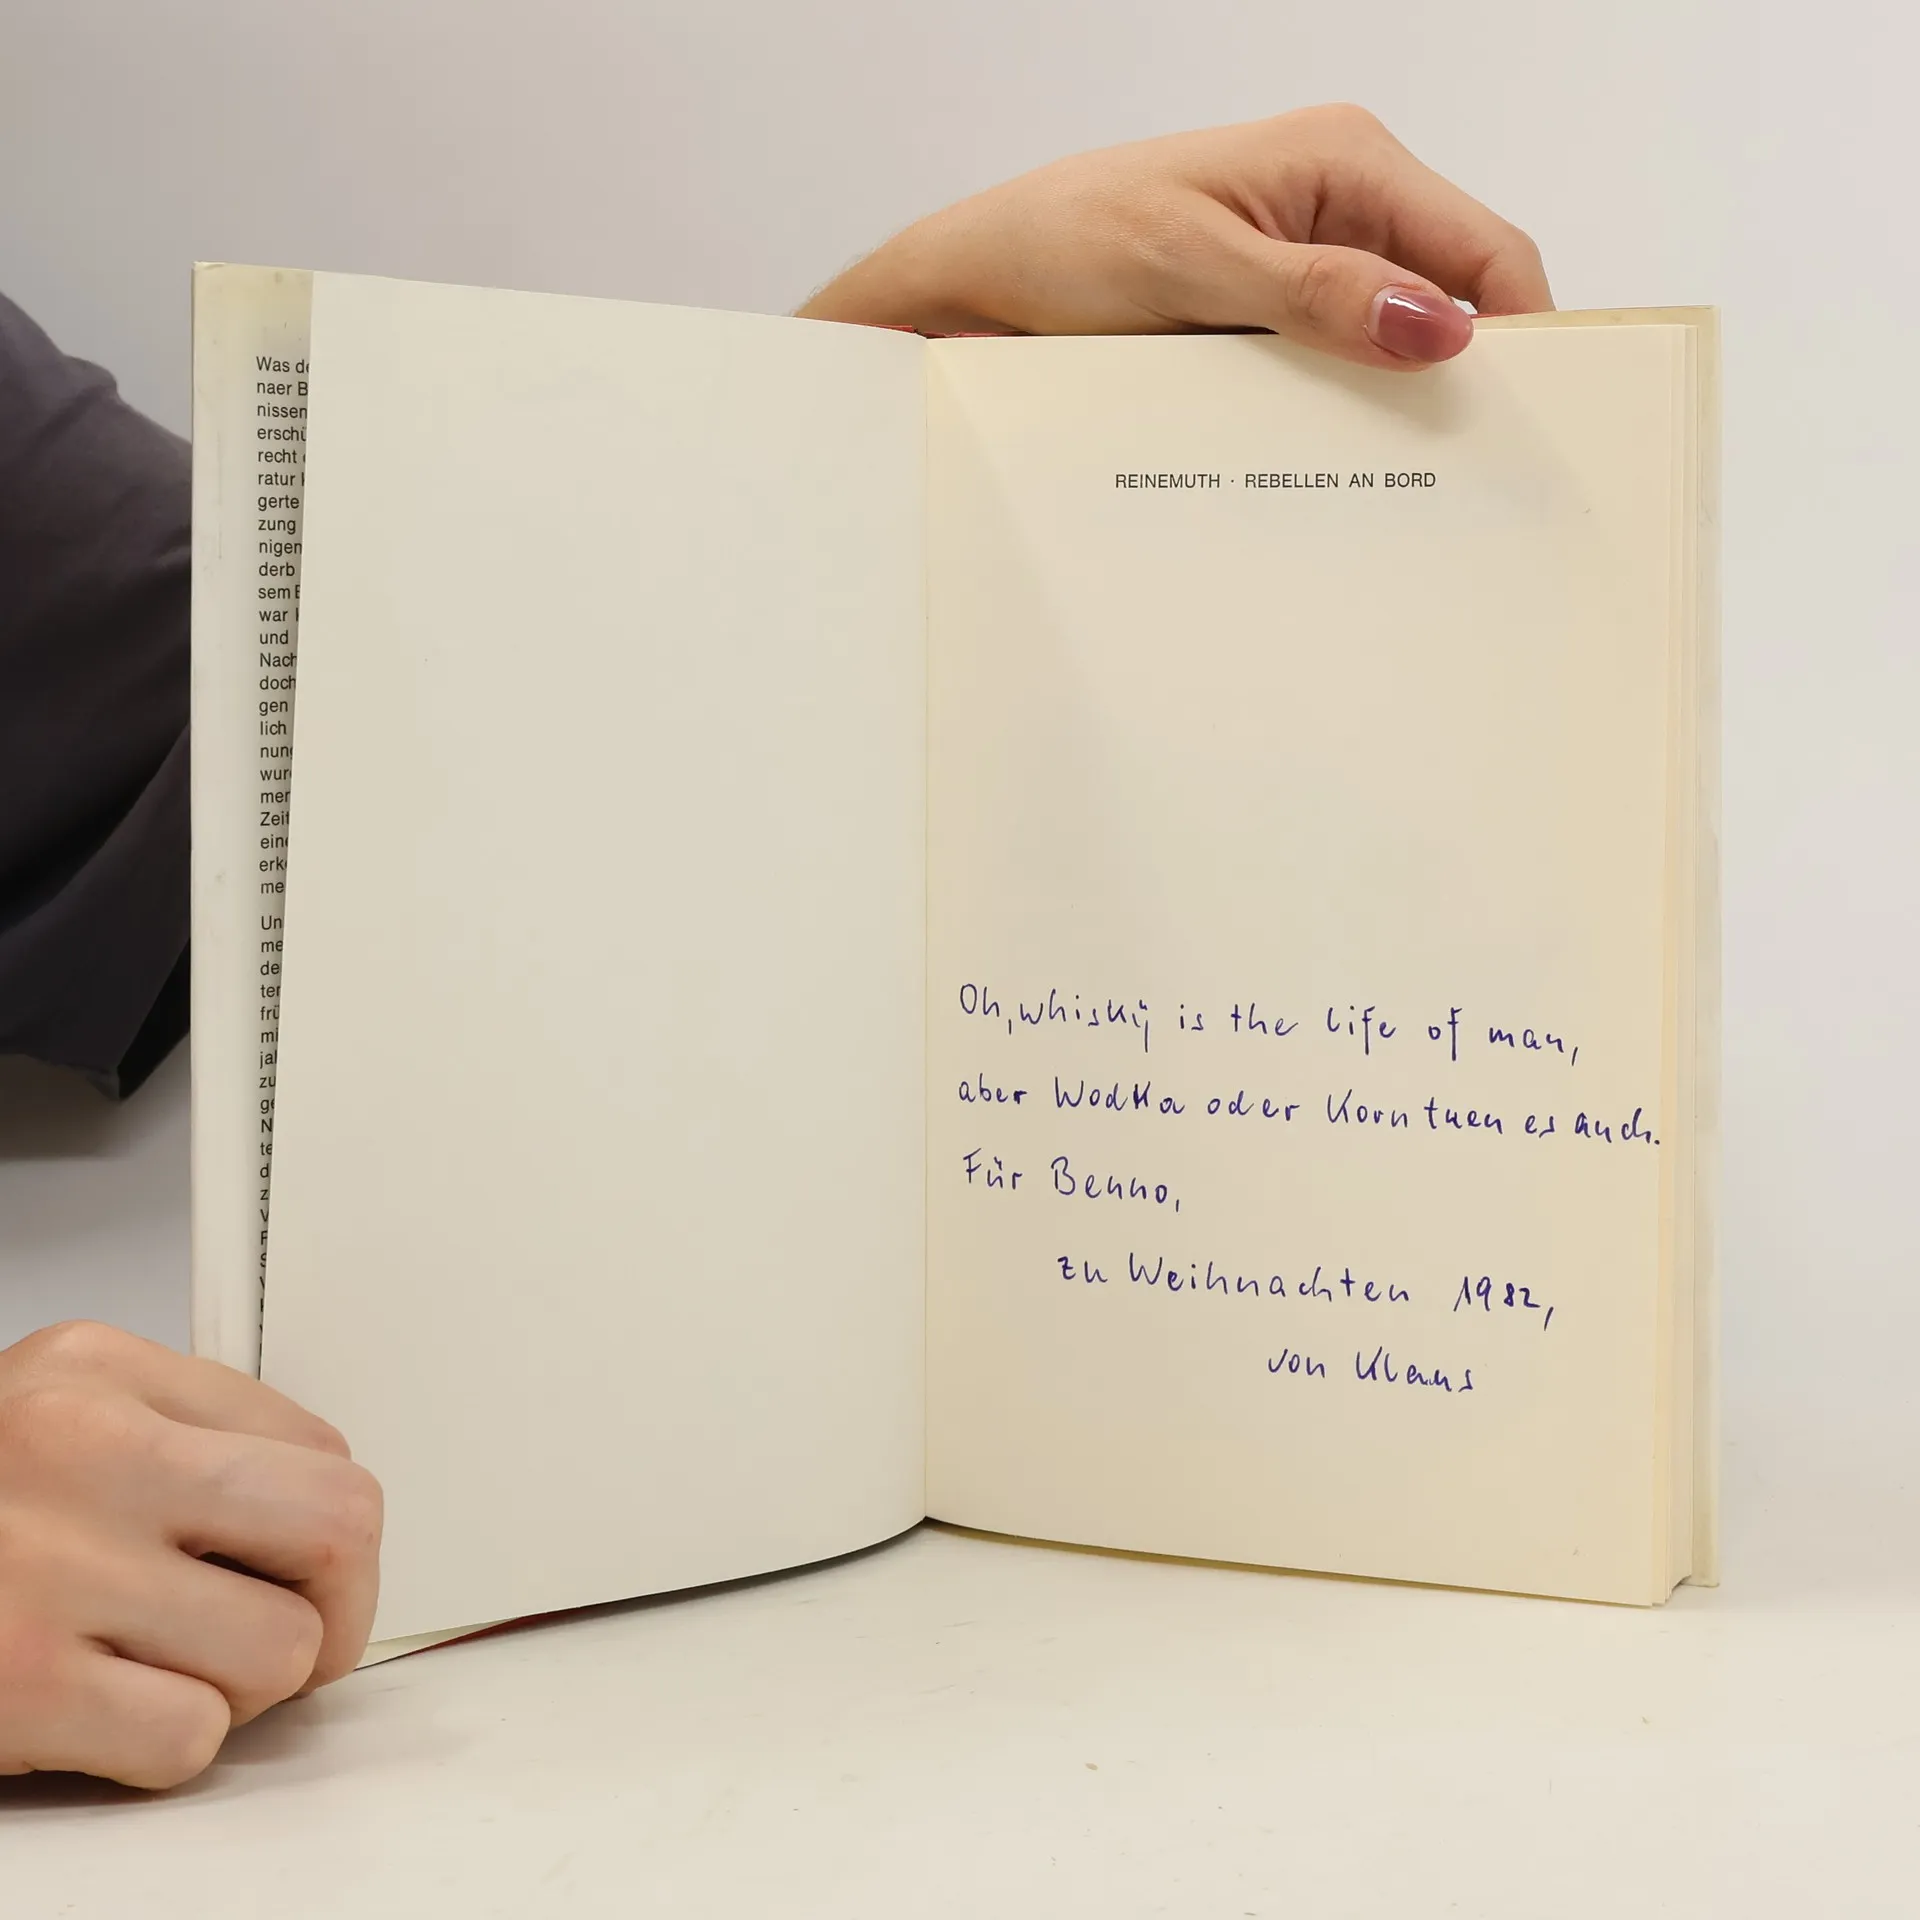 Was
naer B
nissen
erschü
recht
ratur
gerte
zung
nigen
derb
sem
war
und
Nach
doch
gen
lich
nung
wur
mer
Zeit
eine
erke
me
Un
me
de
ter
frü
mi
jal
zu
ge
N
te
d
z
V
F
S
V
REINEMUTH · REBELLEN AN BORD
Oh, whisky is the life of man,
aber Wodka oder Korn tuen es auch.
Für Benno,
zu Weihnachten 1982,
von Klaus